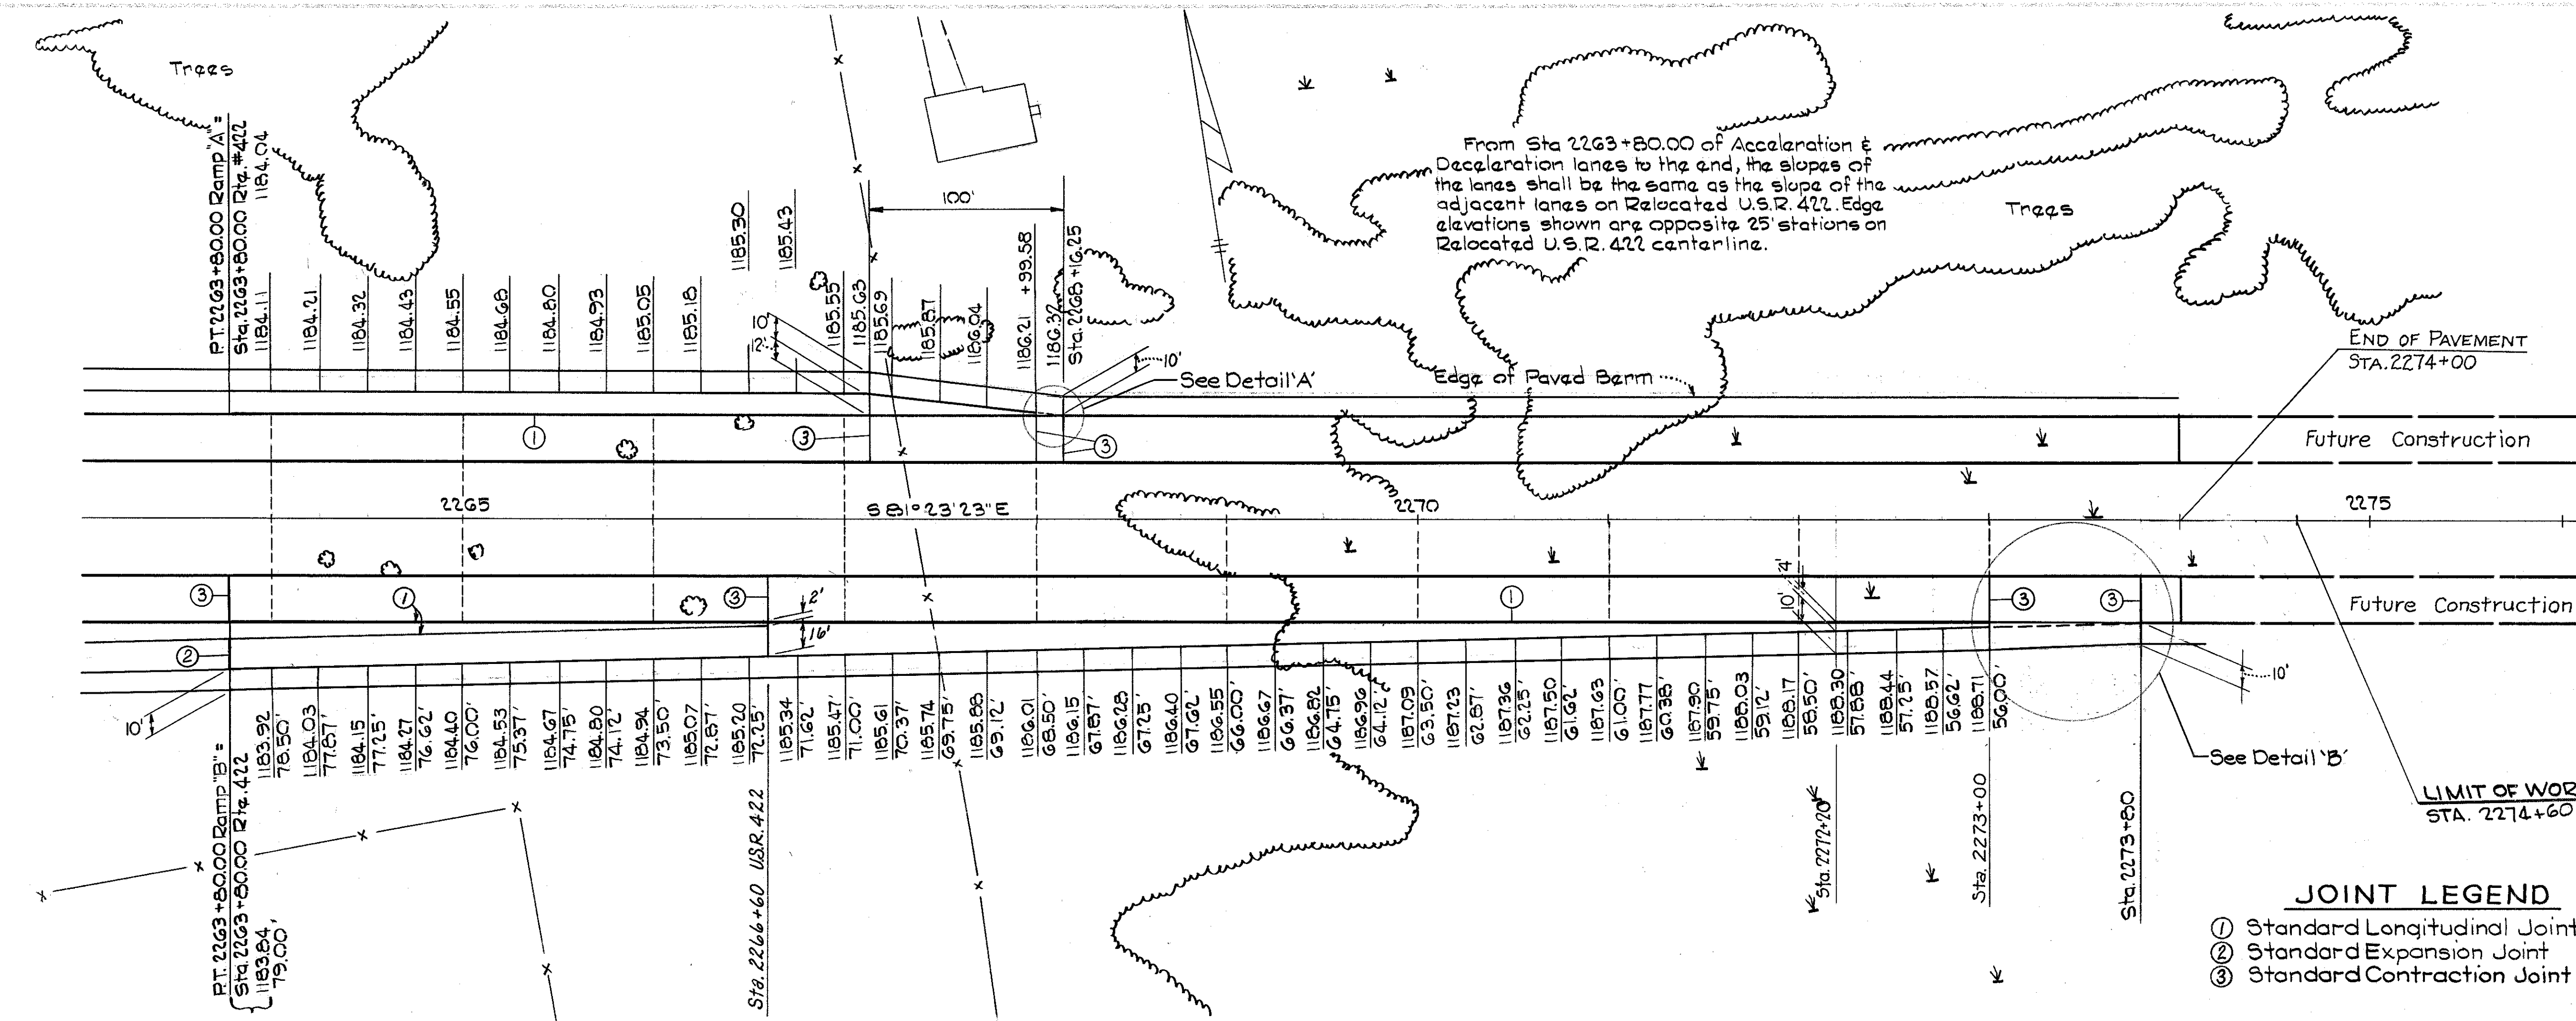 Trees
P.T. 2263+80.00 Ramp "A" =
Sta. 2263+80.00 Rte. #422
1184.04
1184.11
1184.21
1184.32
1184.43
1184.55
1184.68
1184.80
1184.93
1185.05
1185.18
1185.30
1185.43
1185.55
1185.63
1185.69
1185.87
1186.04
1186.21 +99.58
1186.32
Sta. 2268+16.25
100'
10'
12'
10'
See Detail 'A'
From Sta 2263+80.00 of Acceleration &
Deceleration lanes to the end, the slopes of
the lanes shall be the same as the slope of the
adjacent lanes on Relocated U.S.R. 422. Edge
elevations shown are opposite 25' stations on
Relocated U.S.R. 422 centerline.
Trees
Edge of Paved Berm
END OF PAVEMENT
STA. 2274+00
1
3
3
Future Construction
2265
S 81° 23' 23" E
2270
2275
3
1
3
2'
16'
1
4'
10'
3
3
Future Construction
2
10'
10'
1183.92
78.50'
1184.03
77.87'
1184.15
77.25'
1184.27
76.62'
1184.40
76.00'
1184.53
75.37'
1184.67
74.75'
1184.80
74.12'
1184.94
73.50'
1185.07
72.87'
1185.20
72.25'
1185.34
71.62'
1185.47
71.00'
1185.61
70.37'
1185.74
69.75'
1185.88
69.12'
1186.01
68.50'
1186.15
67.87'
1186.28
67.25'
1186.40
67.62'
1186.55
66.00'
1186.67
66.37'
1186.82
64.75'
1186.96
64.12'
1187.09
63.50'
1187.23
62.87'
1187.36
62.25'
1187.50
61.62'
1187.63
61.00'
1187.77
60.38'
1187.90
59.75'
1188.03
59.12'
1188.17
58.50'
1188.30
57.88'
1188.44
57.25'
1188.57
56.62'
1188.71
56.00'
See Detail 'B'
P.T. 2263+80.00 Ramp "B" =
Sta. 2263+80.00 Rte. 422
1183.84
79.00'
Sta. 2266+60 U.S.R. 422
Sta. 2272+20
Sta. 2273+00
Sta. 2273+80
LIMIT OF WOR
STA. 2274+60
JOINT LEGEND
1 Standard Longitudinal Joint
2 Standard Expansion Joint
3 Standard Contraction Joint